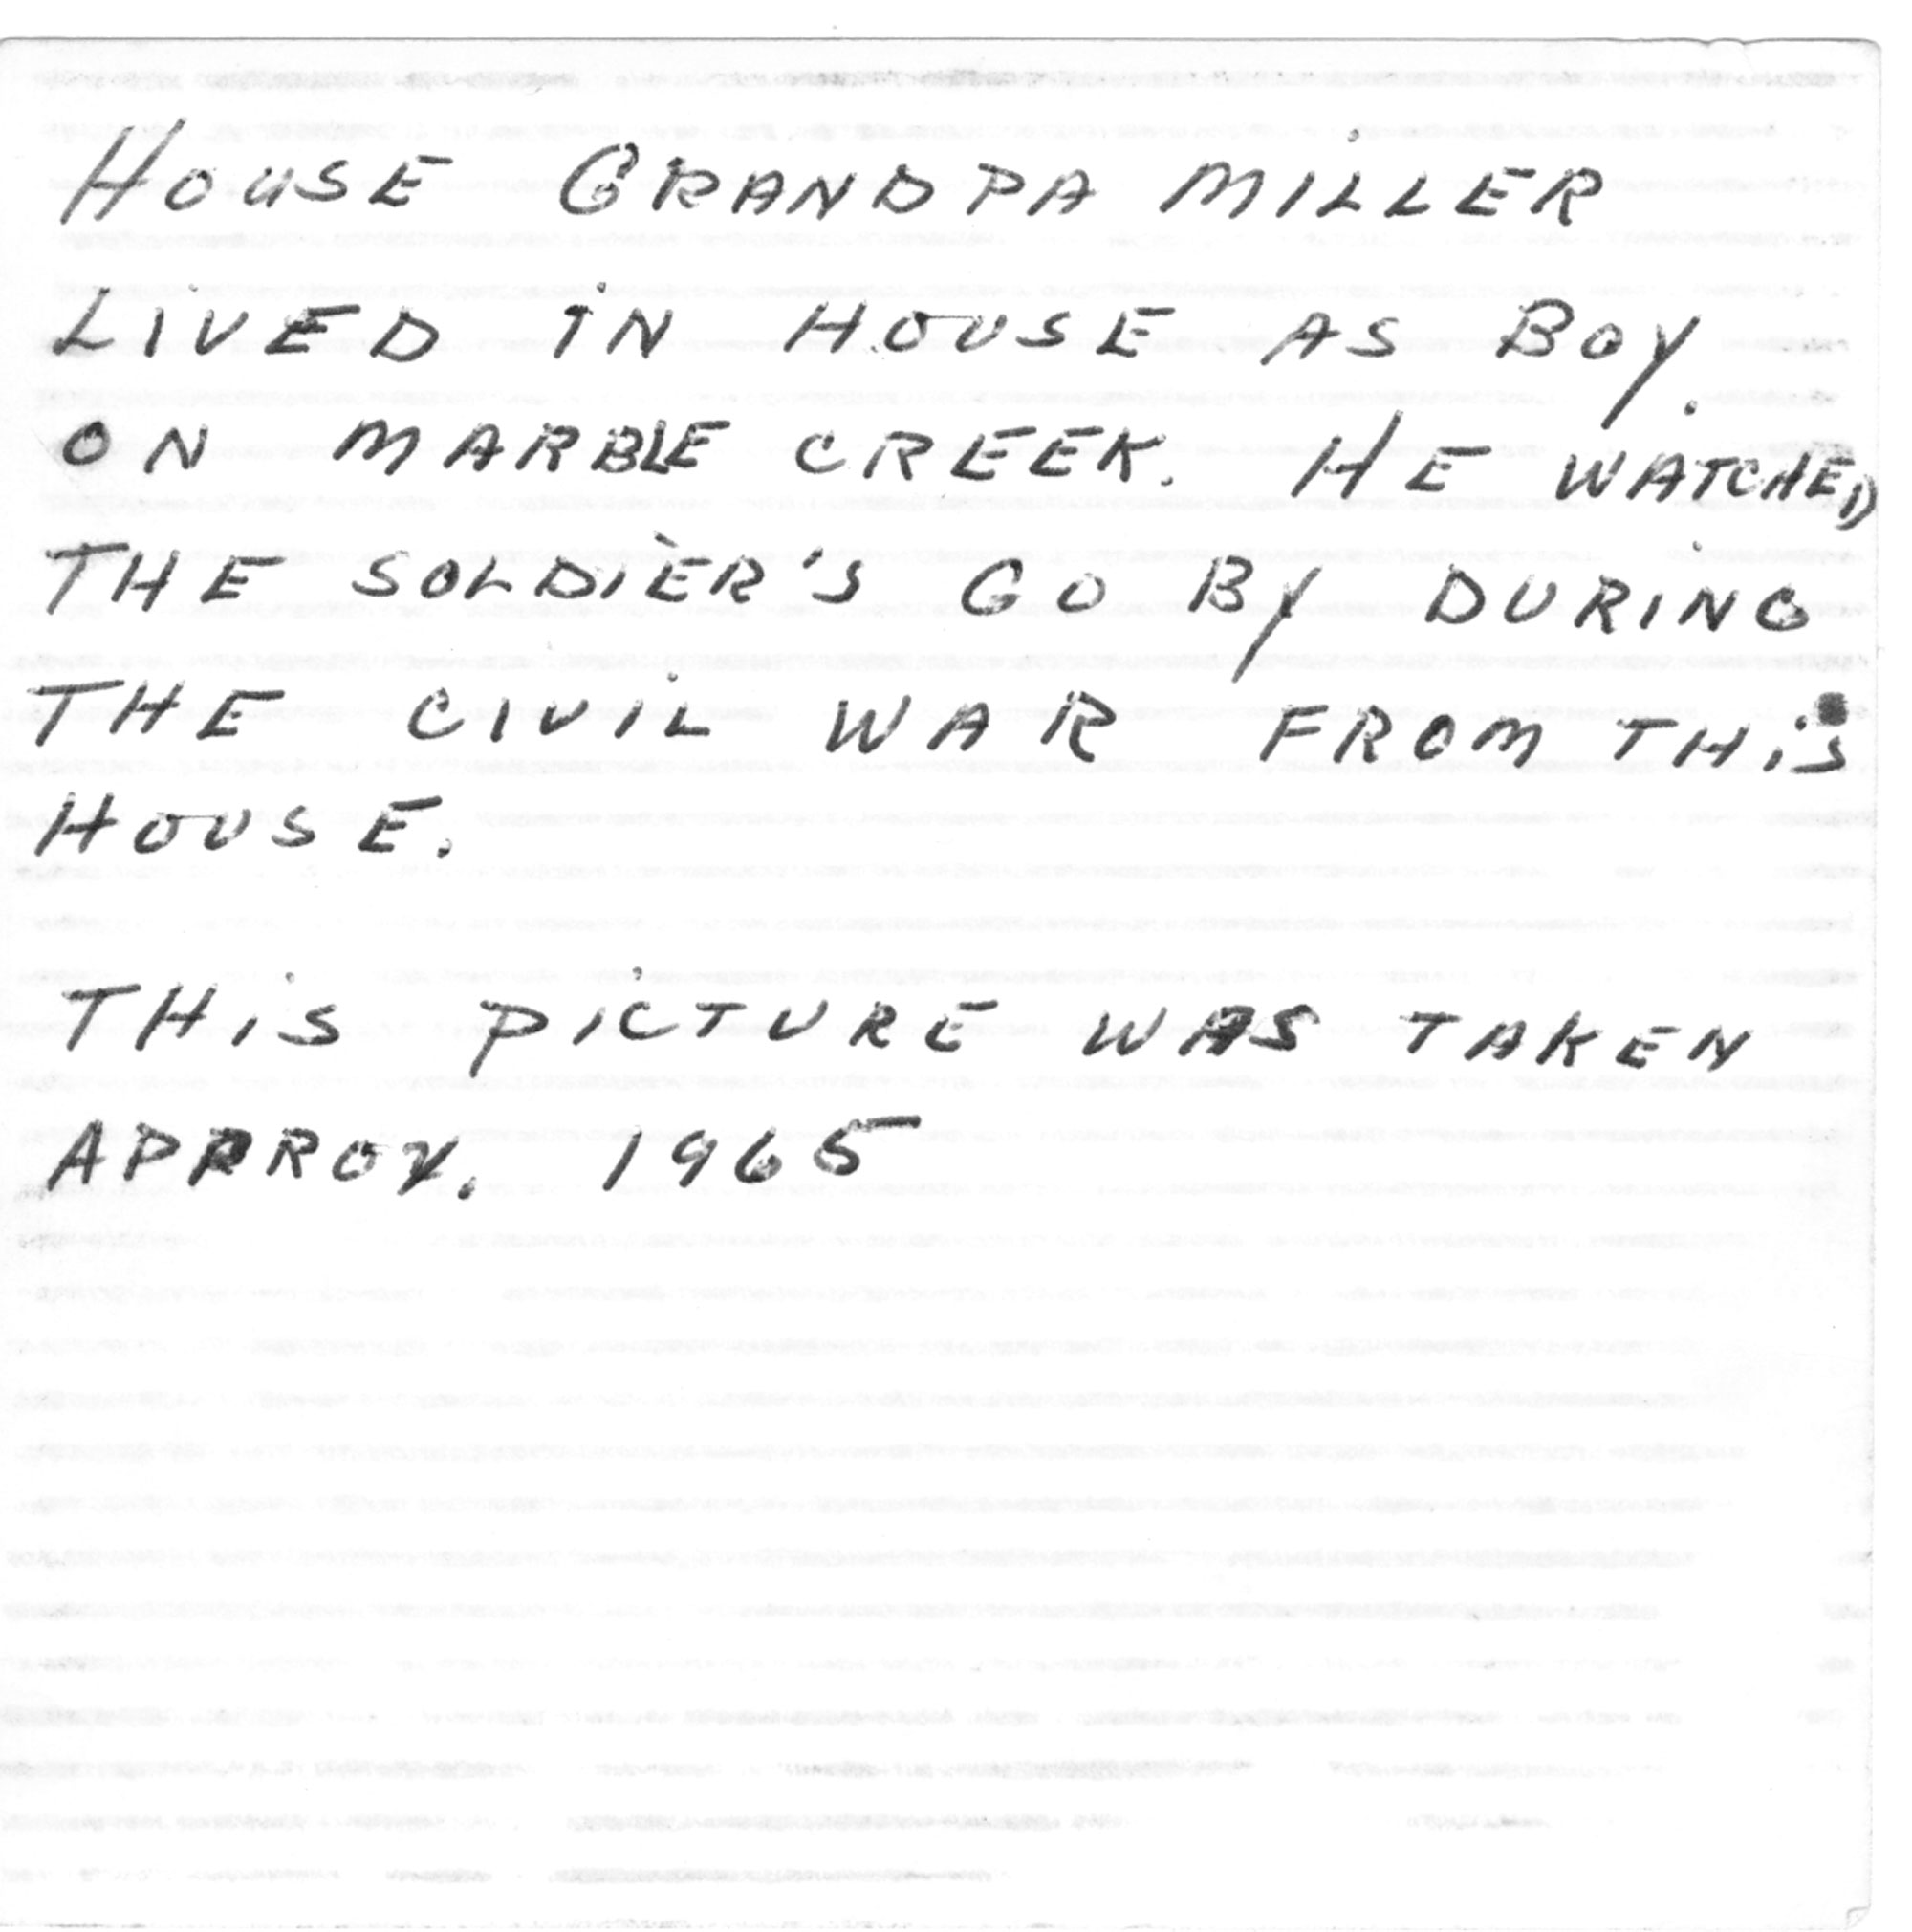 HOUSE GRANDPA MiLLER
LIVED IN HOUSE AS BOY.
ON MARBLE CREEK. HE WATCHED
THE SOLDIER'S GO BY DURING
THE CIVIL WAR FROM THIS
HOUSE.
THIS PICTURE WAS TAKEN
APPROX. 1965